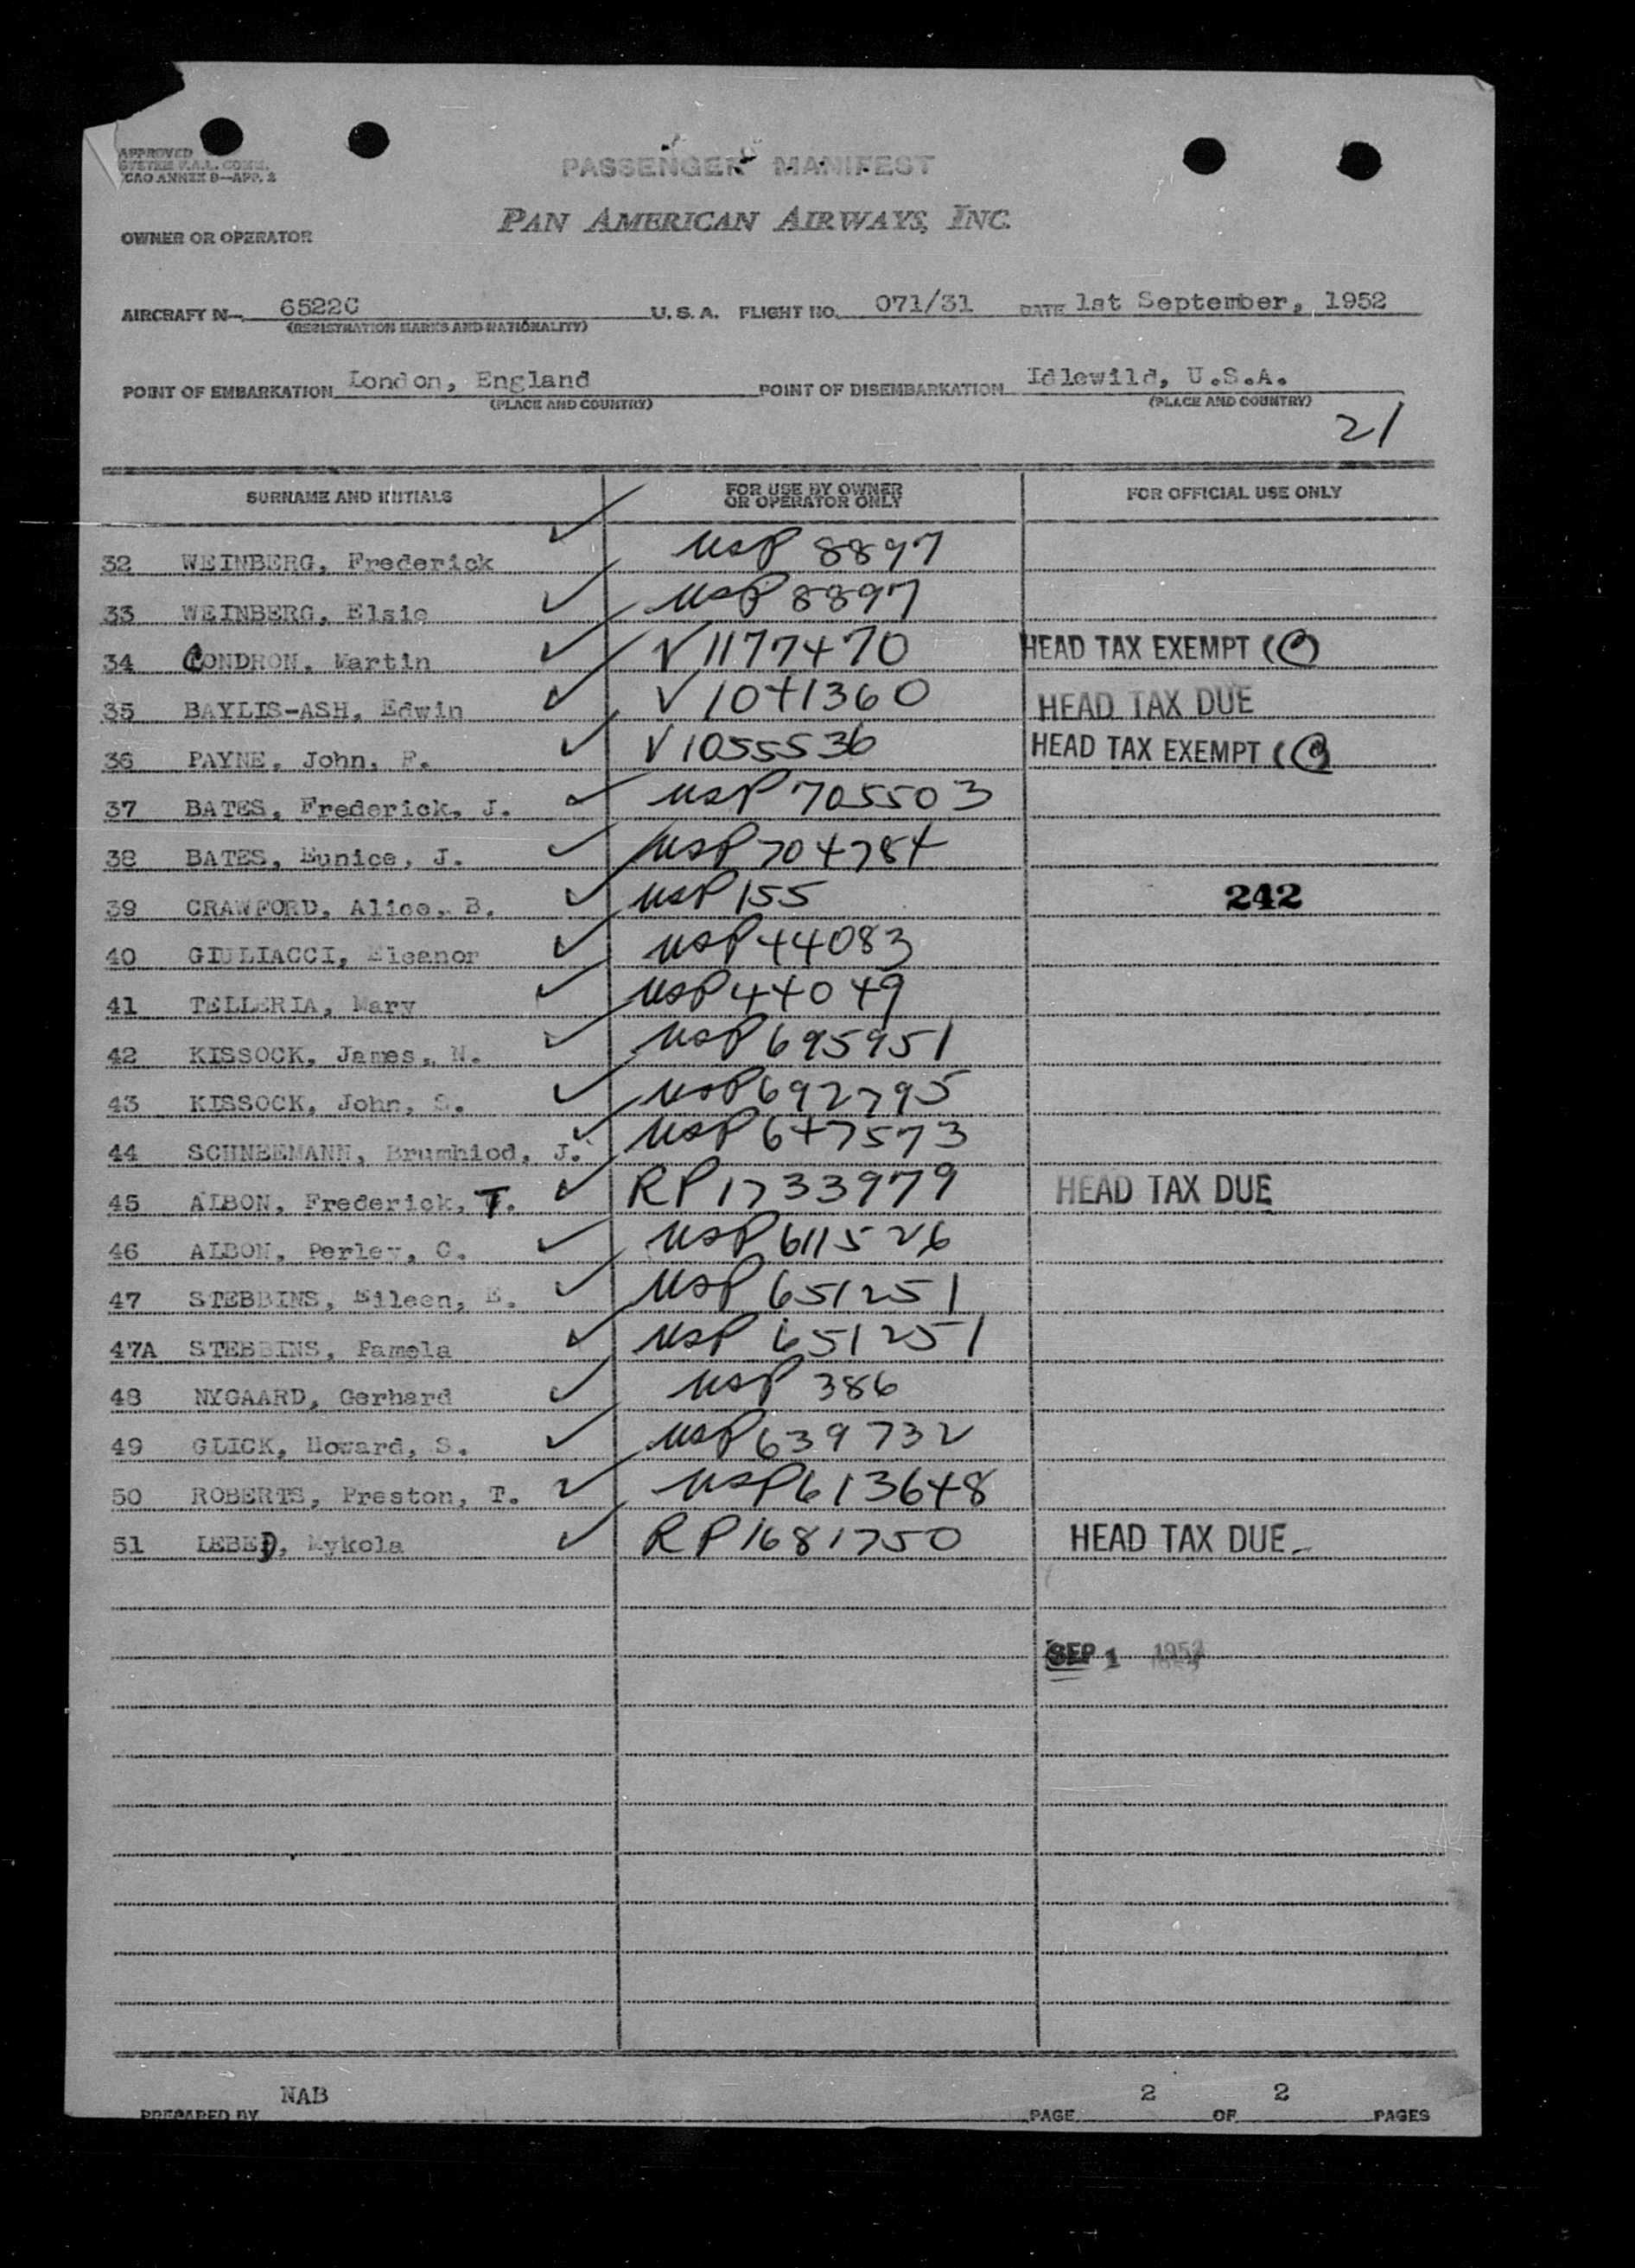 APPROVED
SYSTEM P.A.A. COMM.
ICAO ANNEX 9—APP. 2
PASSENGER MANIFEST
PAN AMERICAN AIRWAYS, INC.
OWNER OR OPERATOR
AIRCRAFT N— 6522C U. S. A. FLIGHT NO. 071/31 DATE 1st September, 1952
(REGISTRATION MARKS AND NATIONALITY)
POINT OF EMBARKATION London, England POINT OF DISEMBARKATION Idlewild, U.S.A.
(PLACE AND COUNTRY) (PLACE AND COUNTRY)
21
SURNAME AND INITIALS FOR USE BY OWNER OR OPERATOR ONLY FOR OFFICIAL USE ONLY
32 WEINBERG, Frederick USP 8897
33 WEINBERG, Elsie USP 8897
34 CONDRON, Martin V 1177470 HEAD TAX EXEMPT
35 BAYLIS-ASH, Edwin V 1041360 HEAD TAX DUE
36 PAYNE, John, F. V 1055536 HEAD TAX EXEMPT
37 BATES, Frederick, J. USP 705503
38 BATES, Eunice, J. USP 704784
39 CRAWFORD, Alice, B. USP 155 242
40 GIULIACCI, Eleanor USP 44083
41 TELLERIA, Mary USP 44049
42 KISSOCK, James, N. USP 695951
43 KISSOCK, John, S. USP 692795
44 SCHNEEMANN, Brumhiod, J. USP 647573
45 ALBON, Frederick, T. RP 1733979 HEAD TAX DUE
46 ALBON, Perley, C. USP 611526
47 STEBBINS, Eileen, E. USP 651251
47A STEBBINS, Pamela USP 651251
48 NYGAARD, Gerhard USP 386
49 GLICK, Howard, S. USP 639732
50 ROBERTS, Preston, T. USP 613648
51 LEBED, Mykola RP 1681750 HEAD TAX DUE
SEP 1 1952
NAB 2 2
PREPARED BY PAGE OF PAGES